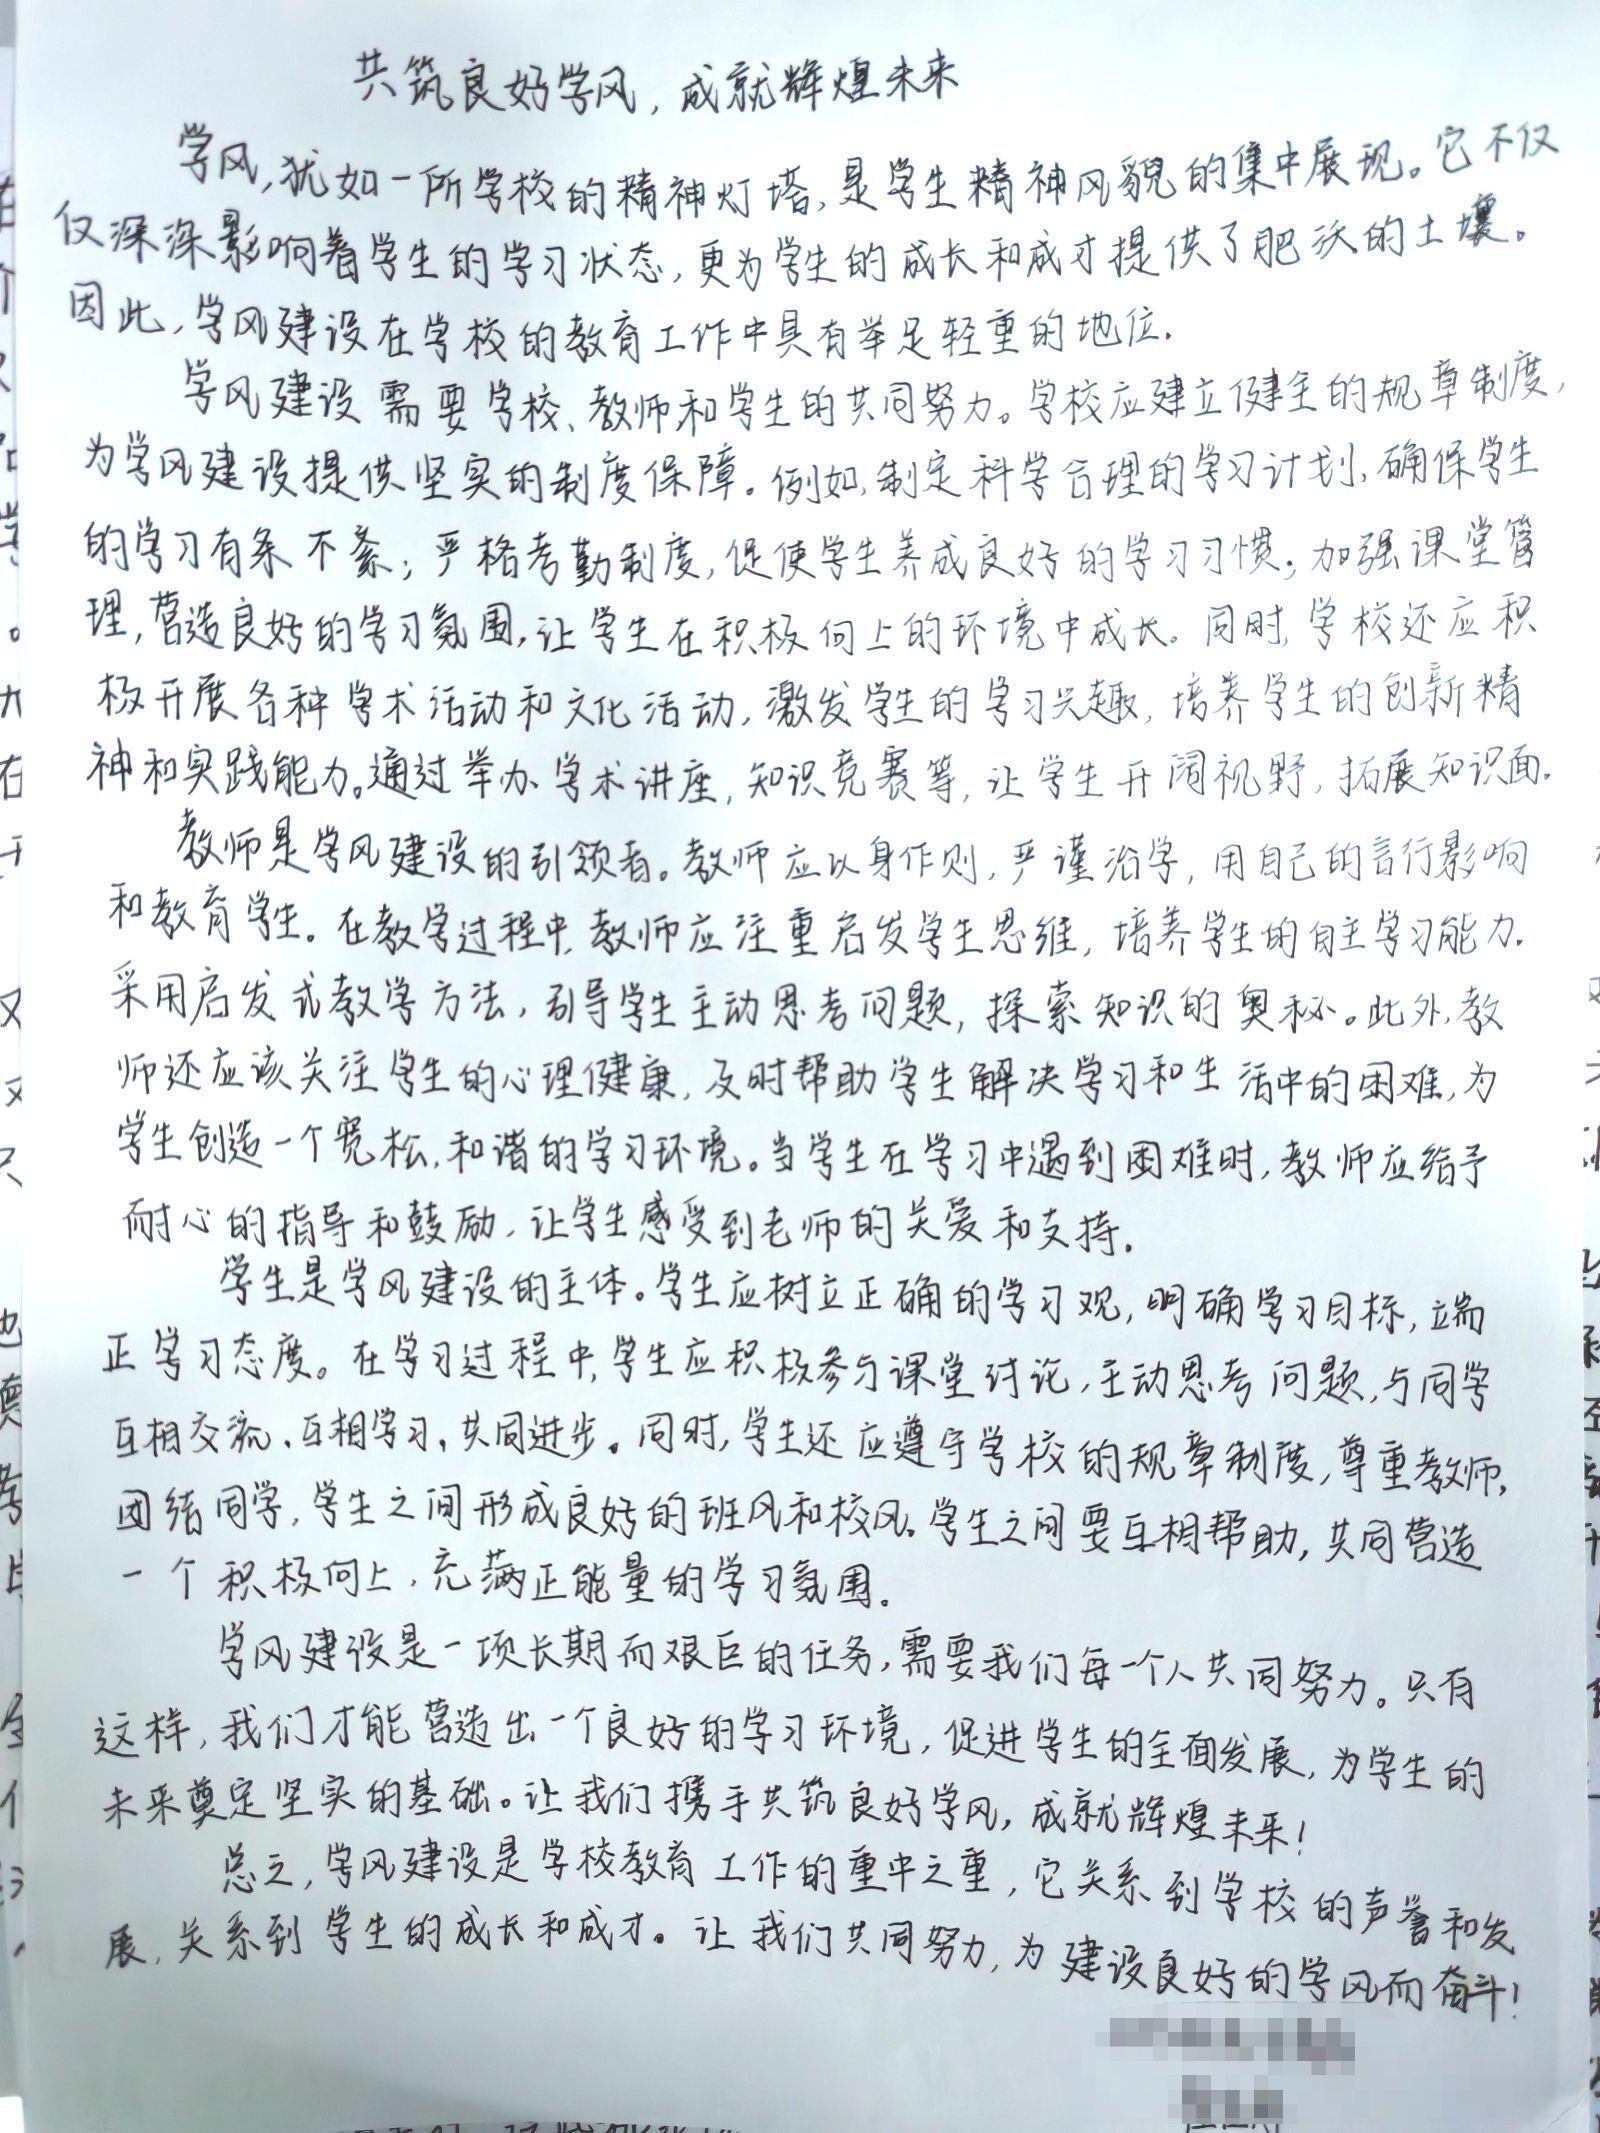 共筑良好学风，成就辉煌未来
学风，犹如一所学校的精神灯塔，是学生精神风貌的集中展现。它不仅
仅深深影响着学生的学习状态，更为学生的成长和成才提供了肥沃的土壤。
因此，学风建设在学校的教育工作中具有举足轻重的地位.
学风建设需要学校、教师和学生的共同努力。学校应建立健全的规章制度，
为学风建设提供坚实的制度保障。例如,制定科学合理的学习计划,确保学生
的学习有条不紊；严格考勤制度,促使学生养成良好的学习习惯；加强课堂管
理,营造良好的学习氛围,让学生在积极向上的环境中成长。同时,学校还应积
极开展各种学术活动和文化活动,激发学生的学习兴趣,培养学生的创新精
神和实践能力。通过举办学术讲座,知识竞赛等,让学生开阔视野,拓展知识面.
教师是学风建设的引领者。教师应以身作则,严谨治学,用自己的言行影响
和教育学生。在教学过程中,教师应注重启发学生思维,培养学生的自主学习能力.
采用启发式教学方法,引导学生主动思考问题,探索知识的奥秘。此外,教
师还应该关注学生的心理健康,及时帮助学生解决学习和生活中的困难,为
学生创造一个宽松,和谐的学习环境。当学生在学习中遇到困难时,教师应给予
耐心的指导和鼓励,让学生感受到老师的关爱和支持.
学生是学风建设的主体。学生应树立正确的学习观,明确学习目标,立端
正学习态度。在学习过程中,学生应积极参与课堂讨论,主动思考问题,与同学
互相交流、互相学习,共同进步。同时,学生还应遵守学校的规章制度,尊重教师,
团结同学,学生之间形成良好的班风和校风.学生之间要互相帮助,共同营造
一个积极向上,充满正能量的学习氛围.
学风建设是一项长期而艰巨的任务,需要我们每一个人共同努力。只有
这样,我们才能营造出一个良好的学习环境,促进学生的全面发展,为学生的
未来奠定坚实的基础。让我们携手共筑良好学风,成就辉煌未来!
总之,学风建设是学校教育工作的重中之重,它关系到学校的声誉和发
展,关系到学生的成长和成才。让我们共同努力,为建设良好的学风而奋斗!